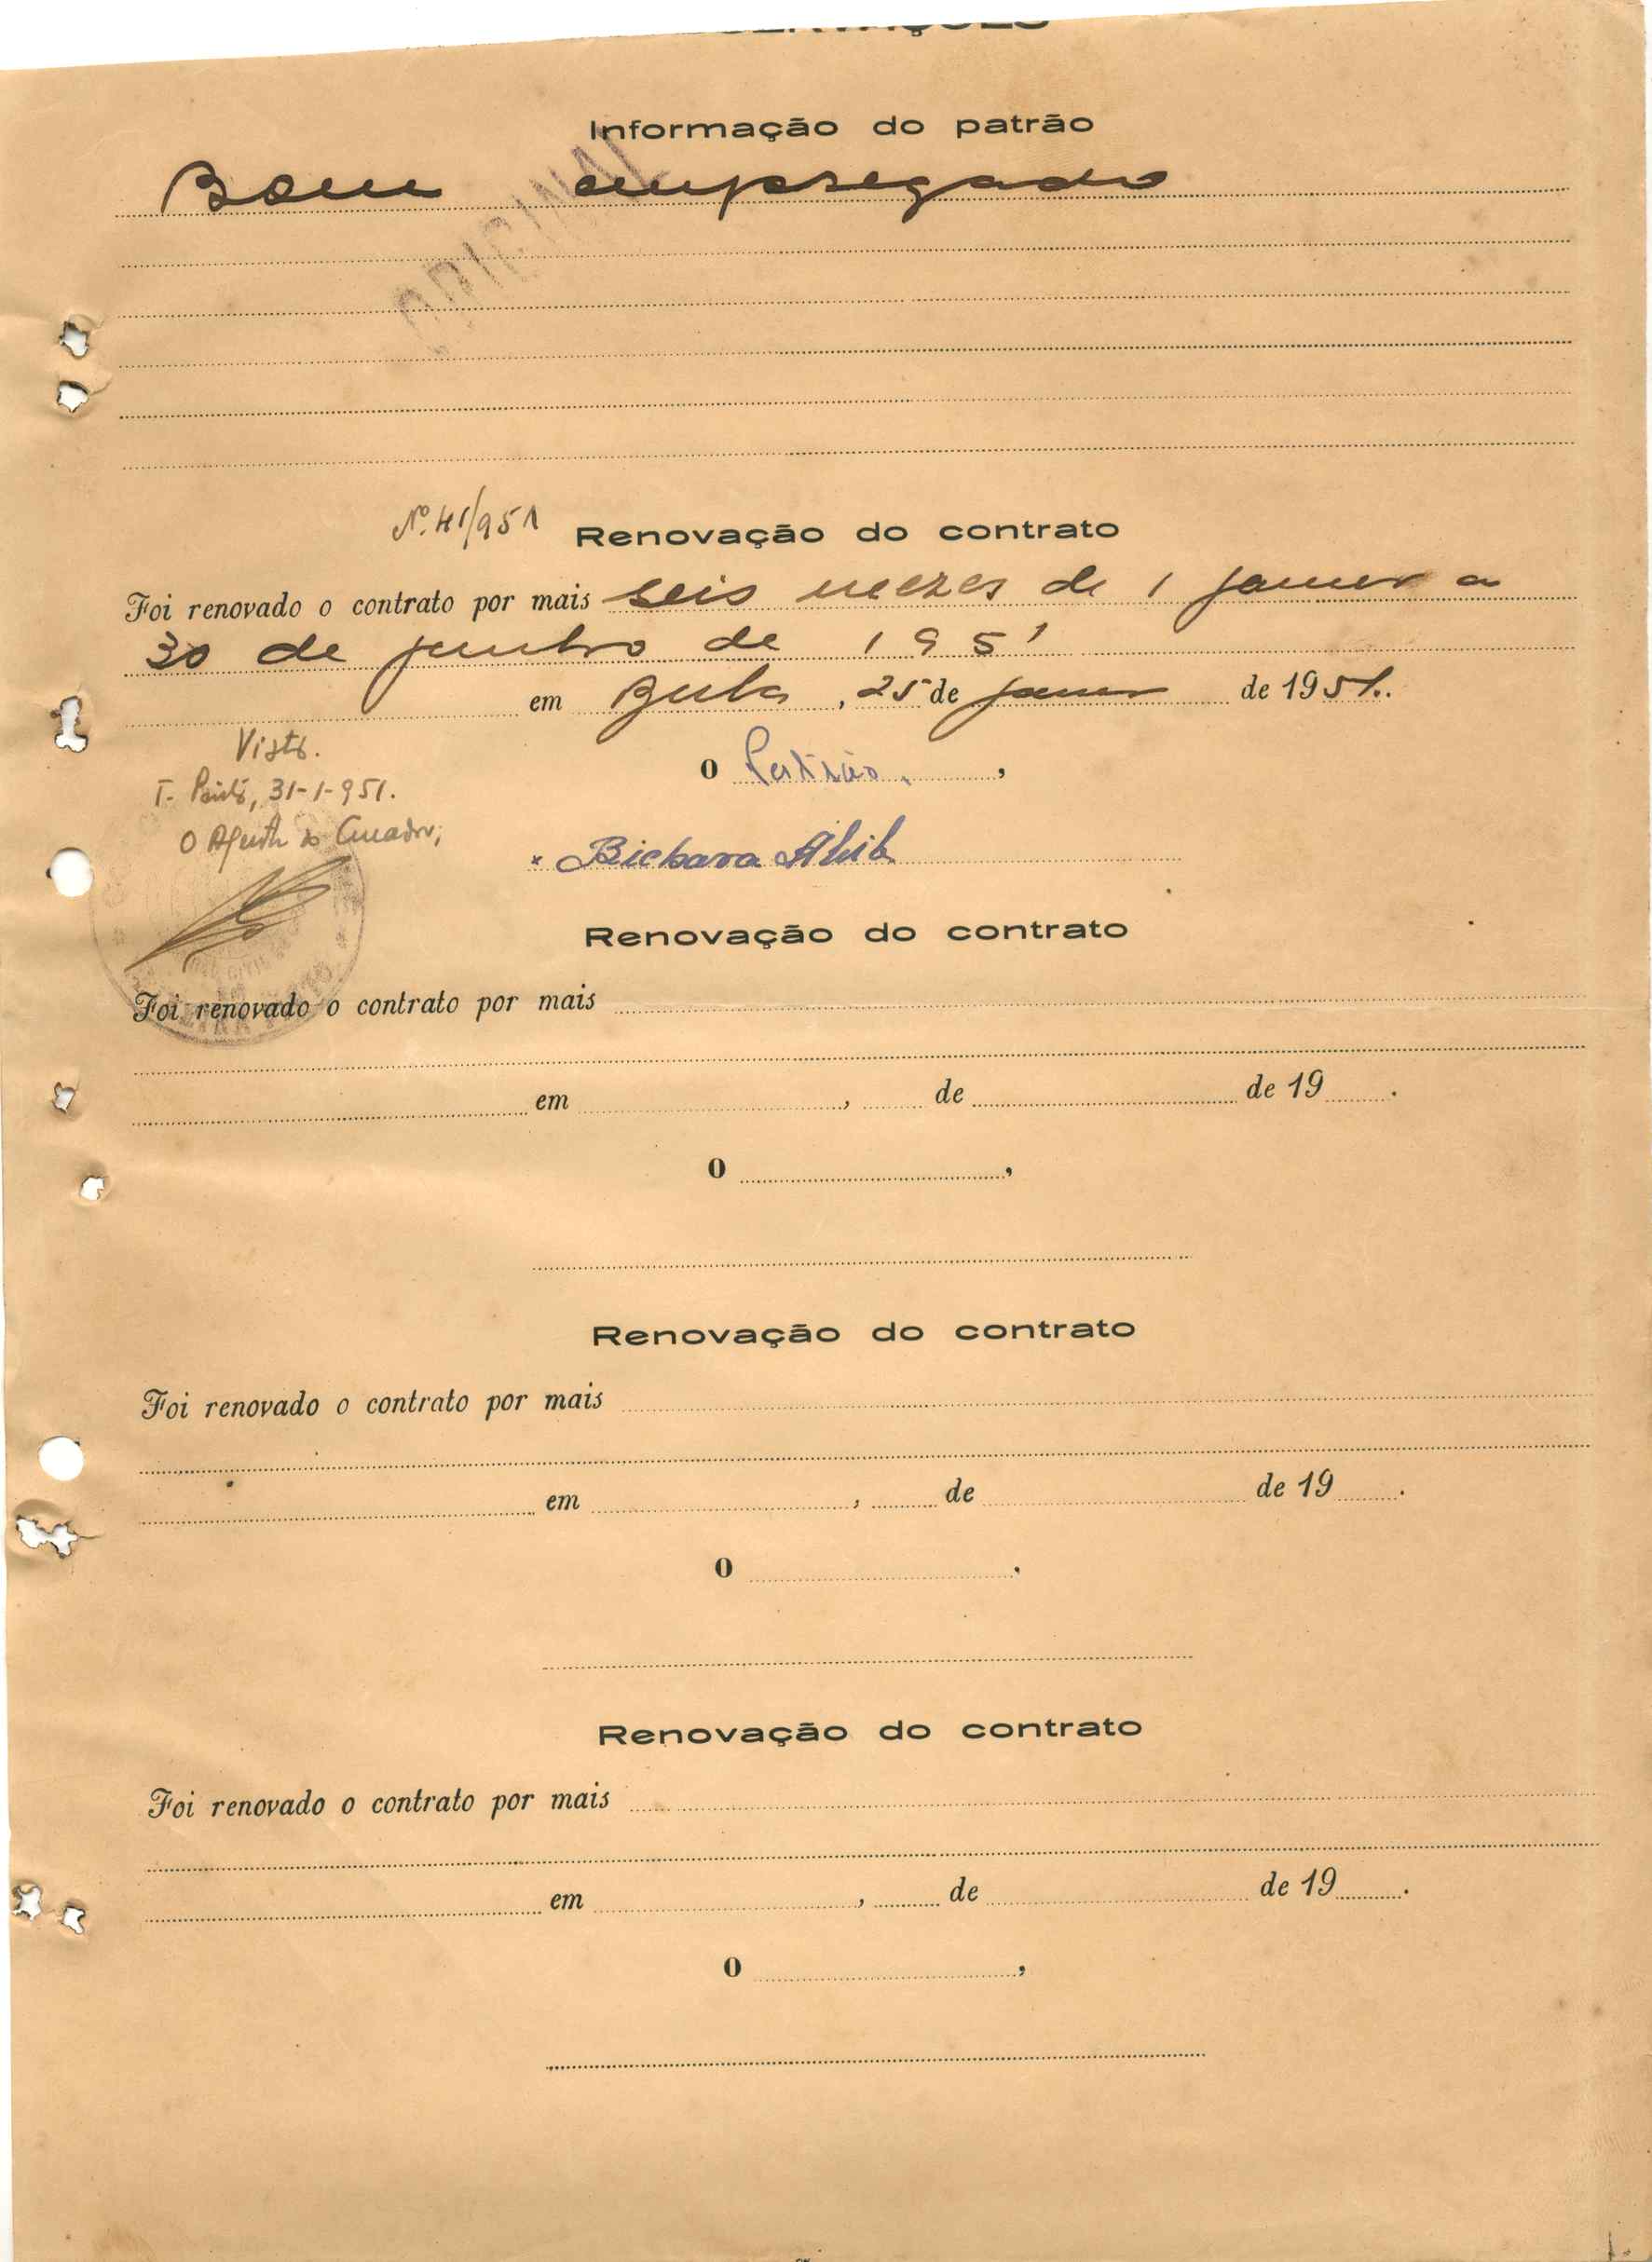 Informação do patrão
Bom empregado
ORIGINAL
Nº 41/951
Renovação do contrato
Foi renovado o contrato por mais seis mezes de 1 janeir a
30 de junho de 1951
em , 25 de janeir de 1951.
Visto.
O Patrão,
T. Pinto, 31-1-951.
O Agente do Curador,
Bichara Abib
Renovação do contrato
Foi renovado o contrato por mais
em , de de 19 .
O ,
Renovação do contrato
Foi renovado o contrato por mais
em , de de 19 .
O ,
Renovação do contrato
Foi renovado o contrato por mais
em , de de 19 .
O ,